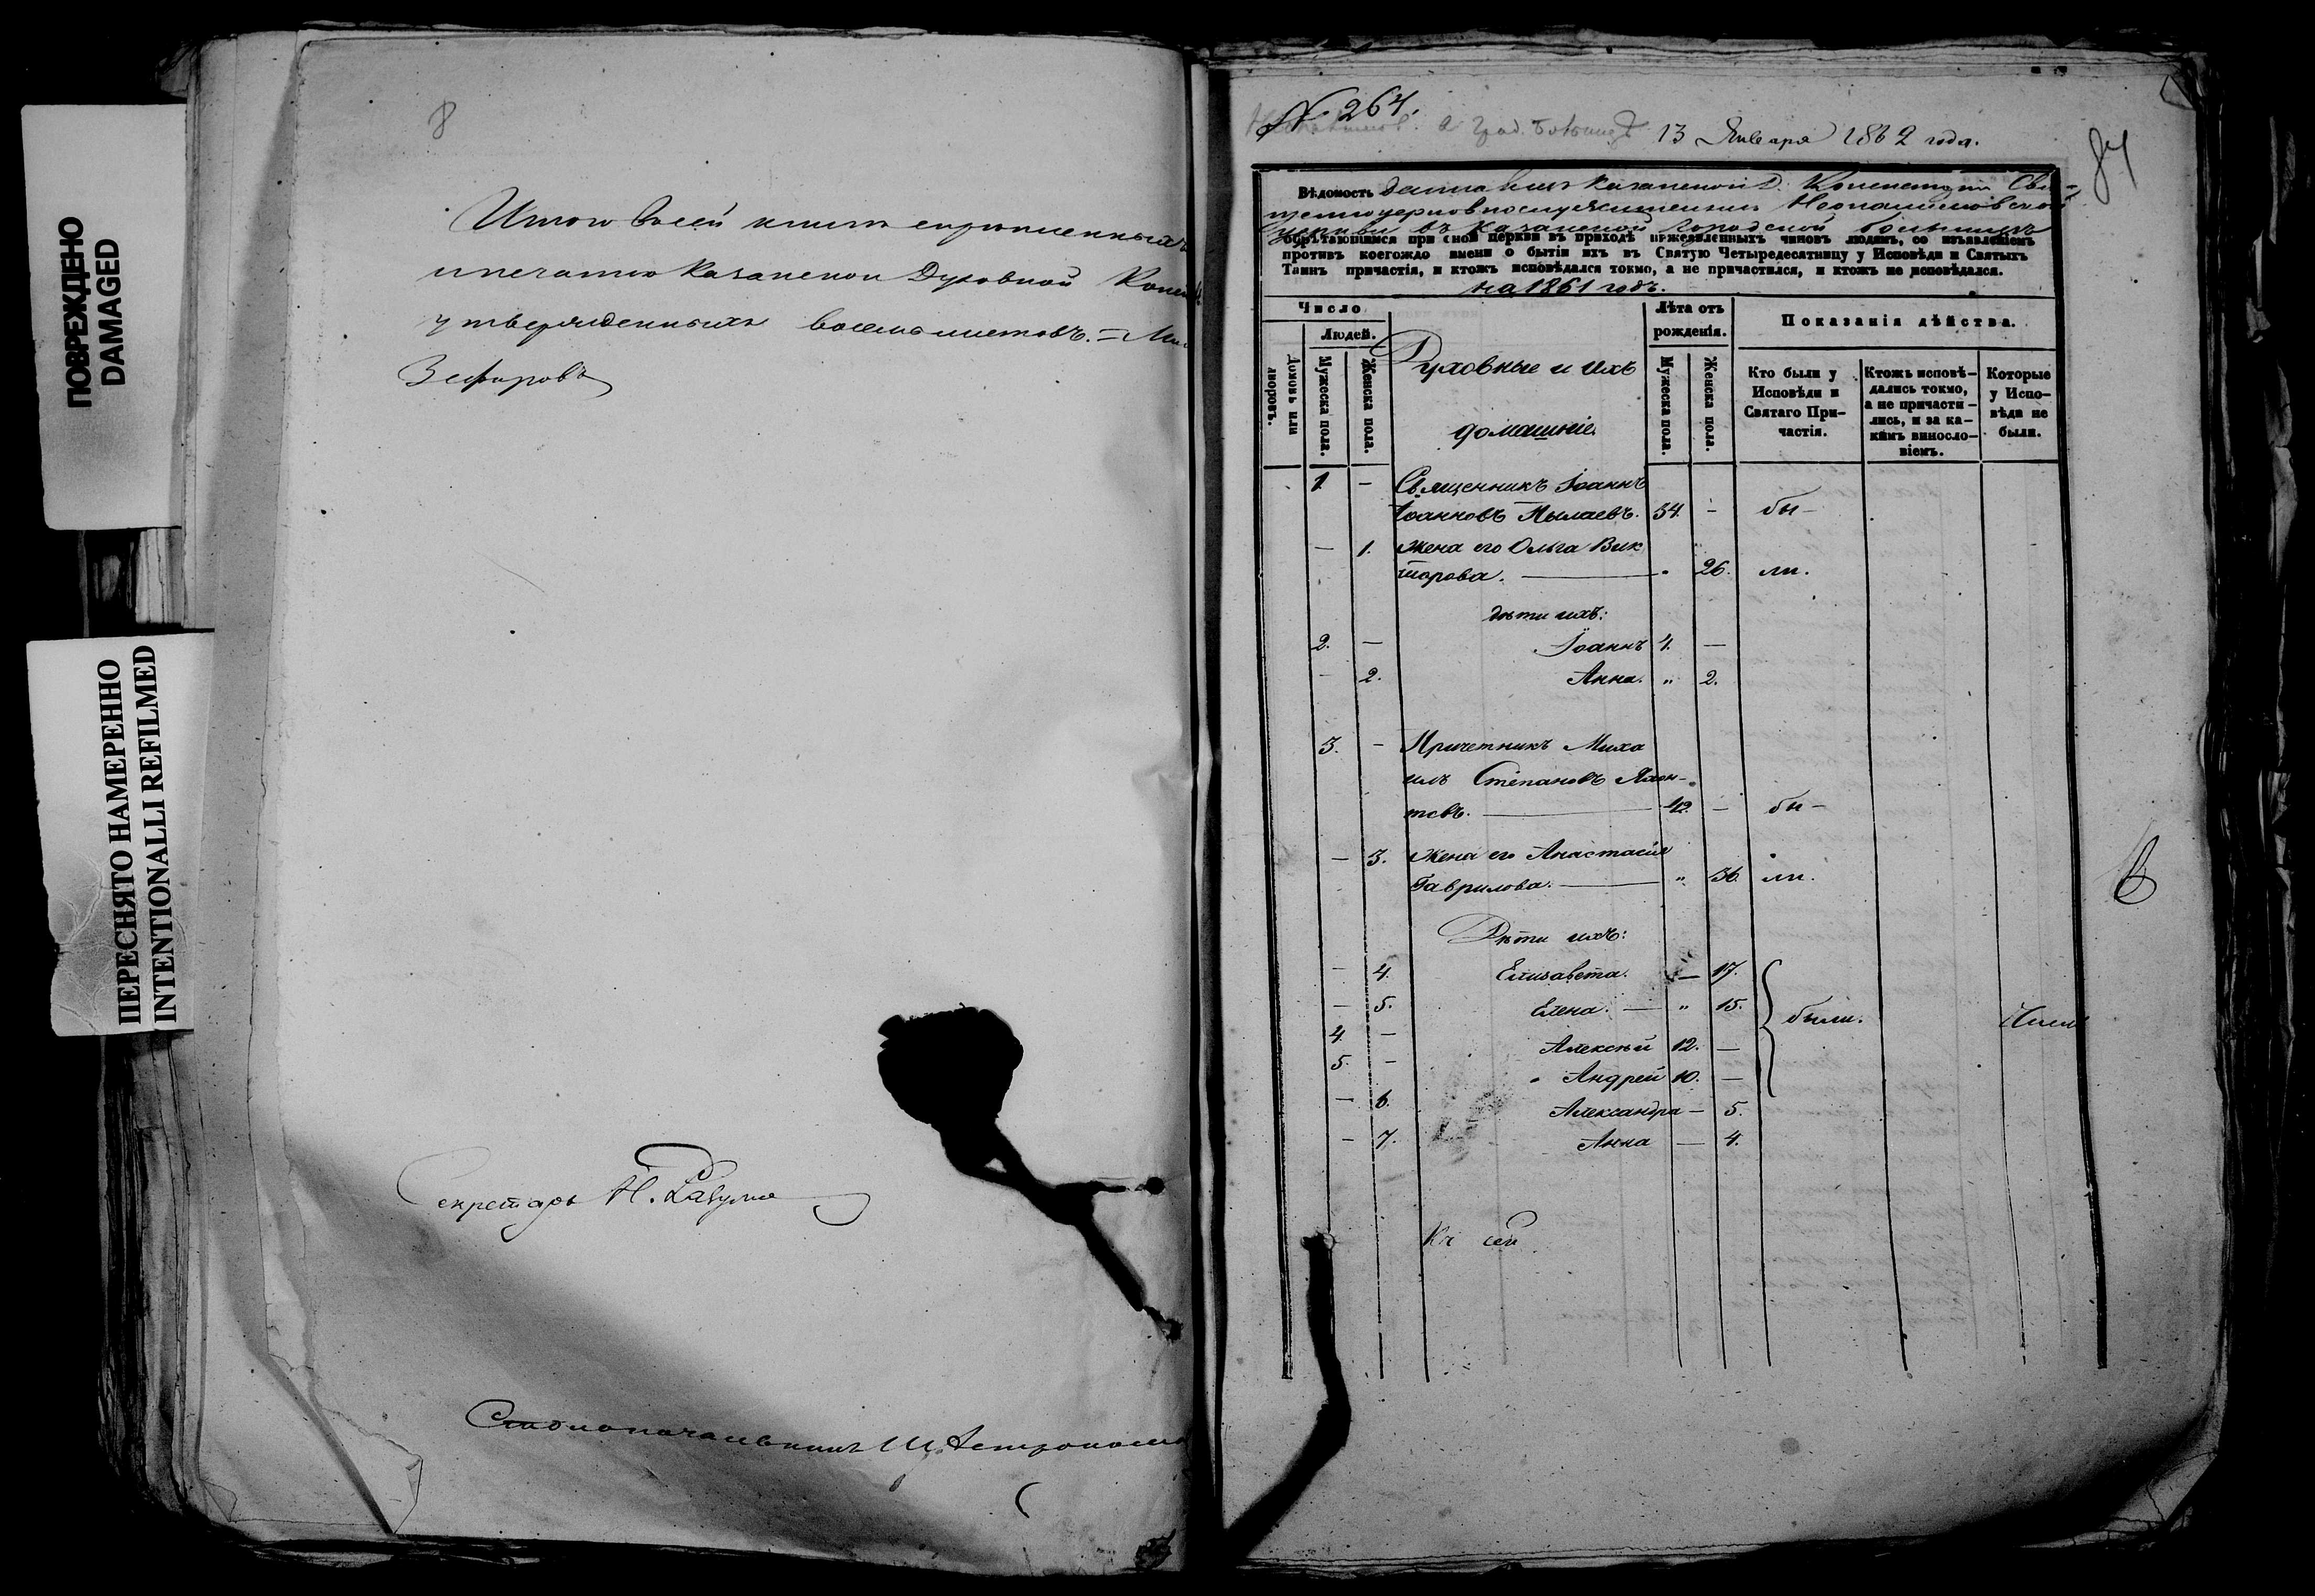 ПОВРЕЖДЕНО
DAMAGED
ПЕРЕСНЯТО НАМЕРЕННО
INTENTIONALLI REFILMED
8
Итого въ сей книгѣ скрѣпленныхъ
и печатью Казанской Духовной Конси
утвержденныхъ восемь листовъ. =
Зефировъ
Секретарь Н.
Столоначальникъ
№ 264.
13 Января 1862 года.
84
Вѣдомость данная изъ Казанской Д. Консисторіи Свя-
щенноцерковнослужителямъ
церкви въ Казанской Городской больницѣ
обрѣтающимся при оной церкви въ приходѣ нижеявленныхъ чиновъ людямъ, со изъявленіемъ
противъ коегождо имени о бытіи ихъ въ Святую Четыредесятницу у Исповѣди и Святыхъ
Таинъ причастія, и ктожъ исповѣдался токмо, а не причастился, и ктожъ не исповѣдался.
на 1861 годъ.
Число
Лѣта отъ рожденія.
Показанія дѣйства.
Людей.
Домовъ или дворовъ.
Мужеска пола.
Женска пола.
Духовные и ихъ
домашніе
Мужеска пола.
Женска пола.
Кто были у Исповѣди и Святаго При-частія.
Ктожъ исповѣ-дались токмо, а не причасти-лись, и за ка-кимъ виносло-віемъ.
Которые у Испо-вѣди не были.
1. — Священникъ Іоаннъ
Іоанновъ Пылаевъ. 34. — бы-
— 1. Жена его Ольга Вик
торова. — 26. ли.
дѣти ихъ:
2. — Іоаннъ 4. —
— 2. Анна. „ 2.
3. — Причетникъ Миха
илъ Степановъ Леон-
тевъ. — 42. — бы-
— 3. Жена его Анастасія
Гаврилова. — „ 36. ли.
Дѣти ихъ:
— 4. Елизавета. — 17.
— 5. Елена. — „ 15.
были.
4. — Алексѣй 12. —
5. — Андрей 10. —
— 6. Александра — 5.
— 7. Анна — 4.
Къ сей